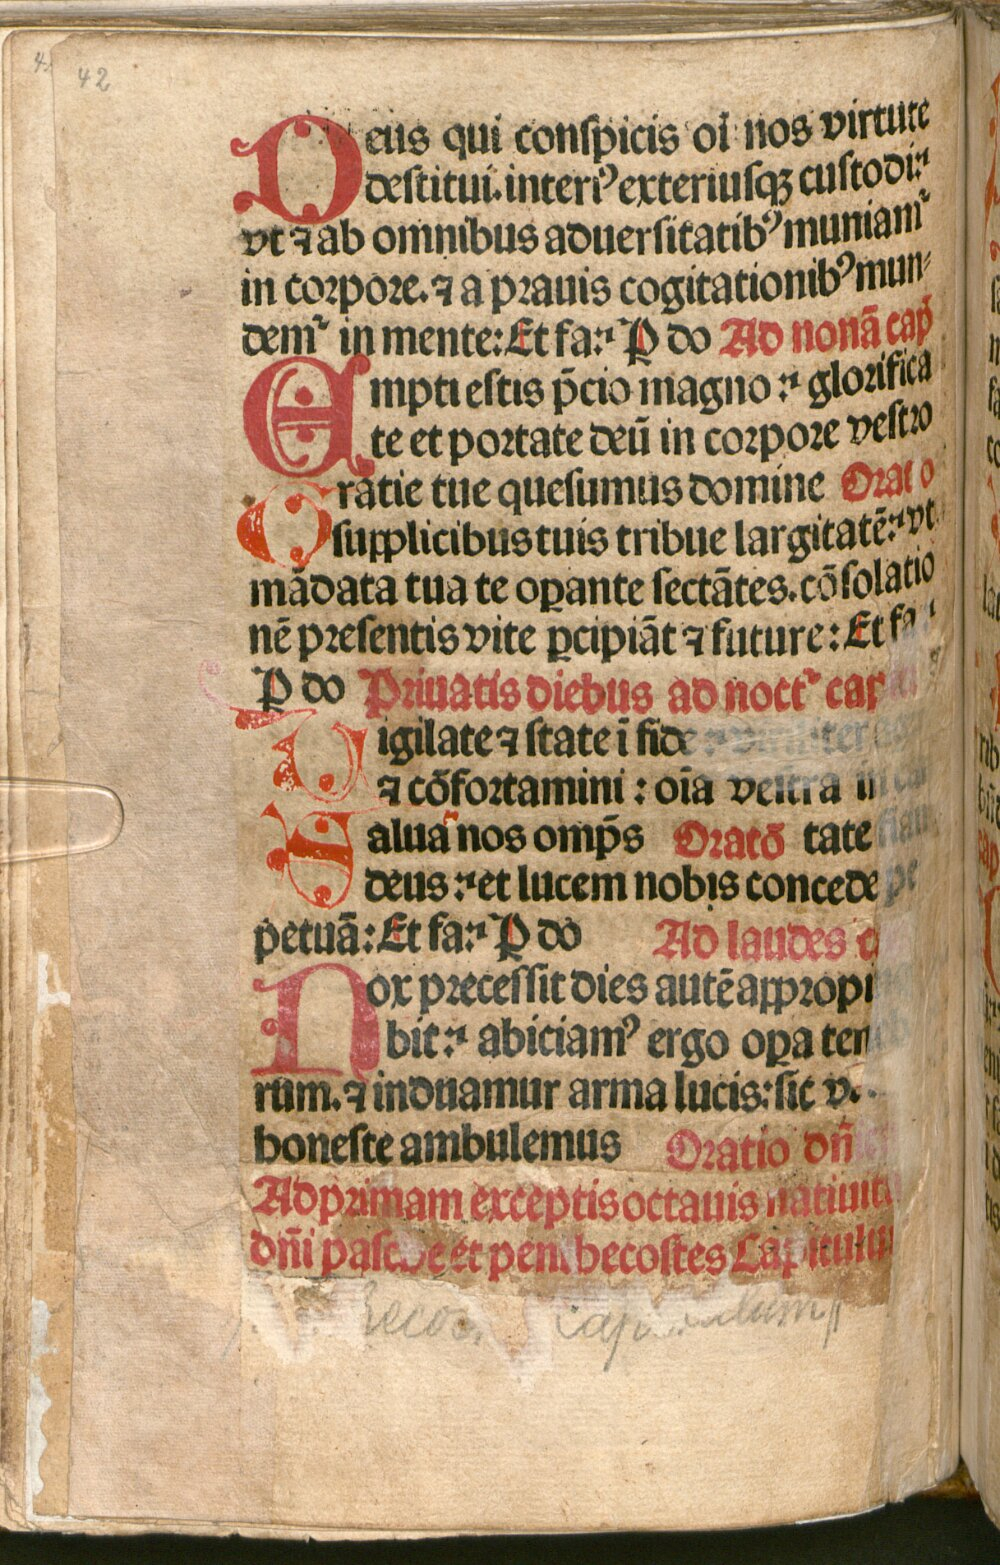 42
Deus qui conspicis oī nos virtute
destitui. interi⁹ exteriusqꝫ custodi:⁊
vt ⁊ ab omnibus aduersitatib⁹ muniam᷑
in corpore. ⁊ a prauis cogitationib⁹ mun⸗
dem᷑ in mente: Et fa:⁊ P do Ad nonā cap̄
Empti estis p̄cio magno :⁊ glorifica
te et portate deū in corpore vestro
Gratie tue quesumus domine Orat o
supplicibus tuis tribue largitatē:⁊ vt
mādata tua te oꝑante sectātes. cōsolatio
nē presentis vite ꝑcipiāt ⁊ future: Et fa
P do Priuatis diebus ad noct᷑ cap
Vigilate ⁊ state ī fide :⁊ viriliter
⁊ cōfortamini : oīa vestra in
Salua nos omp̄s Oratō tate fian
deus :⁊ et lucem nobis concede pe
petuā: Et fa:⁊ P do Ad laudes c
Nox precessit dies autē appropi
bit :⁊ abiciam⁹ ergo oꝑa ten
rum. ⁊ induamur arma lucis: sic v
honeste ambulemus Oratio dn̄
Ad primam exceptis octauis natiuit
dn̄i pasche et penthecostes Capitulu
hecos capitulum